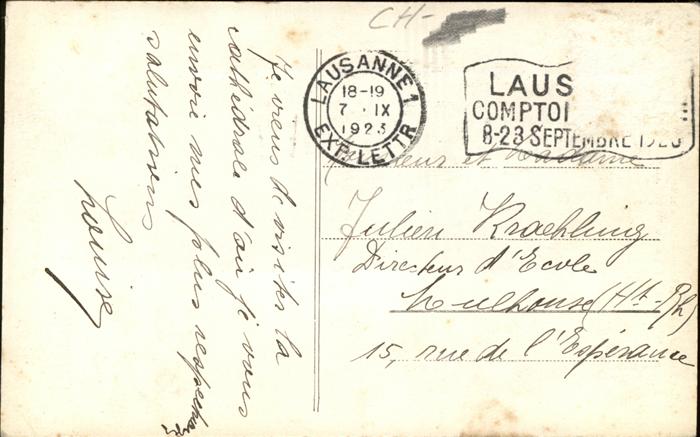 CH-
LAUSANNE 1
18-19
7 · IX
1923
EXP. LETTR
LAUS
COMPTOI
8-23 SEPTEMBRE 1923
Je viens de visiter la
cathédrale d'où je vous
envoie mes plus respectueuses
salutations
Louise
Monsieur et Madame
Julien Kraehling
Directeur d'Ecole
Mulhouse (Ht-Rh)
15, rue de l'Espérance